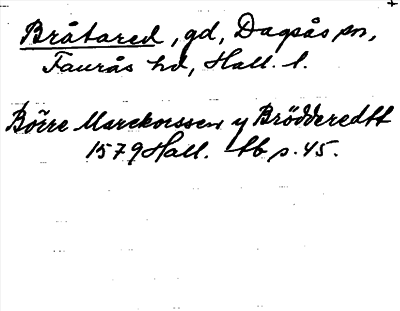 Bråtared, gd, Dagsås sn,
Faurås hd, Hall. l.
Börre Marckorssen y Brödderedtt
1579 Hall. tb p. 45.